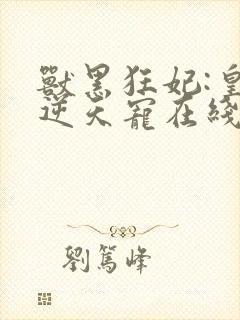 獸黑狂妃:皇
逆天寵在綫
劉篤峰